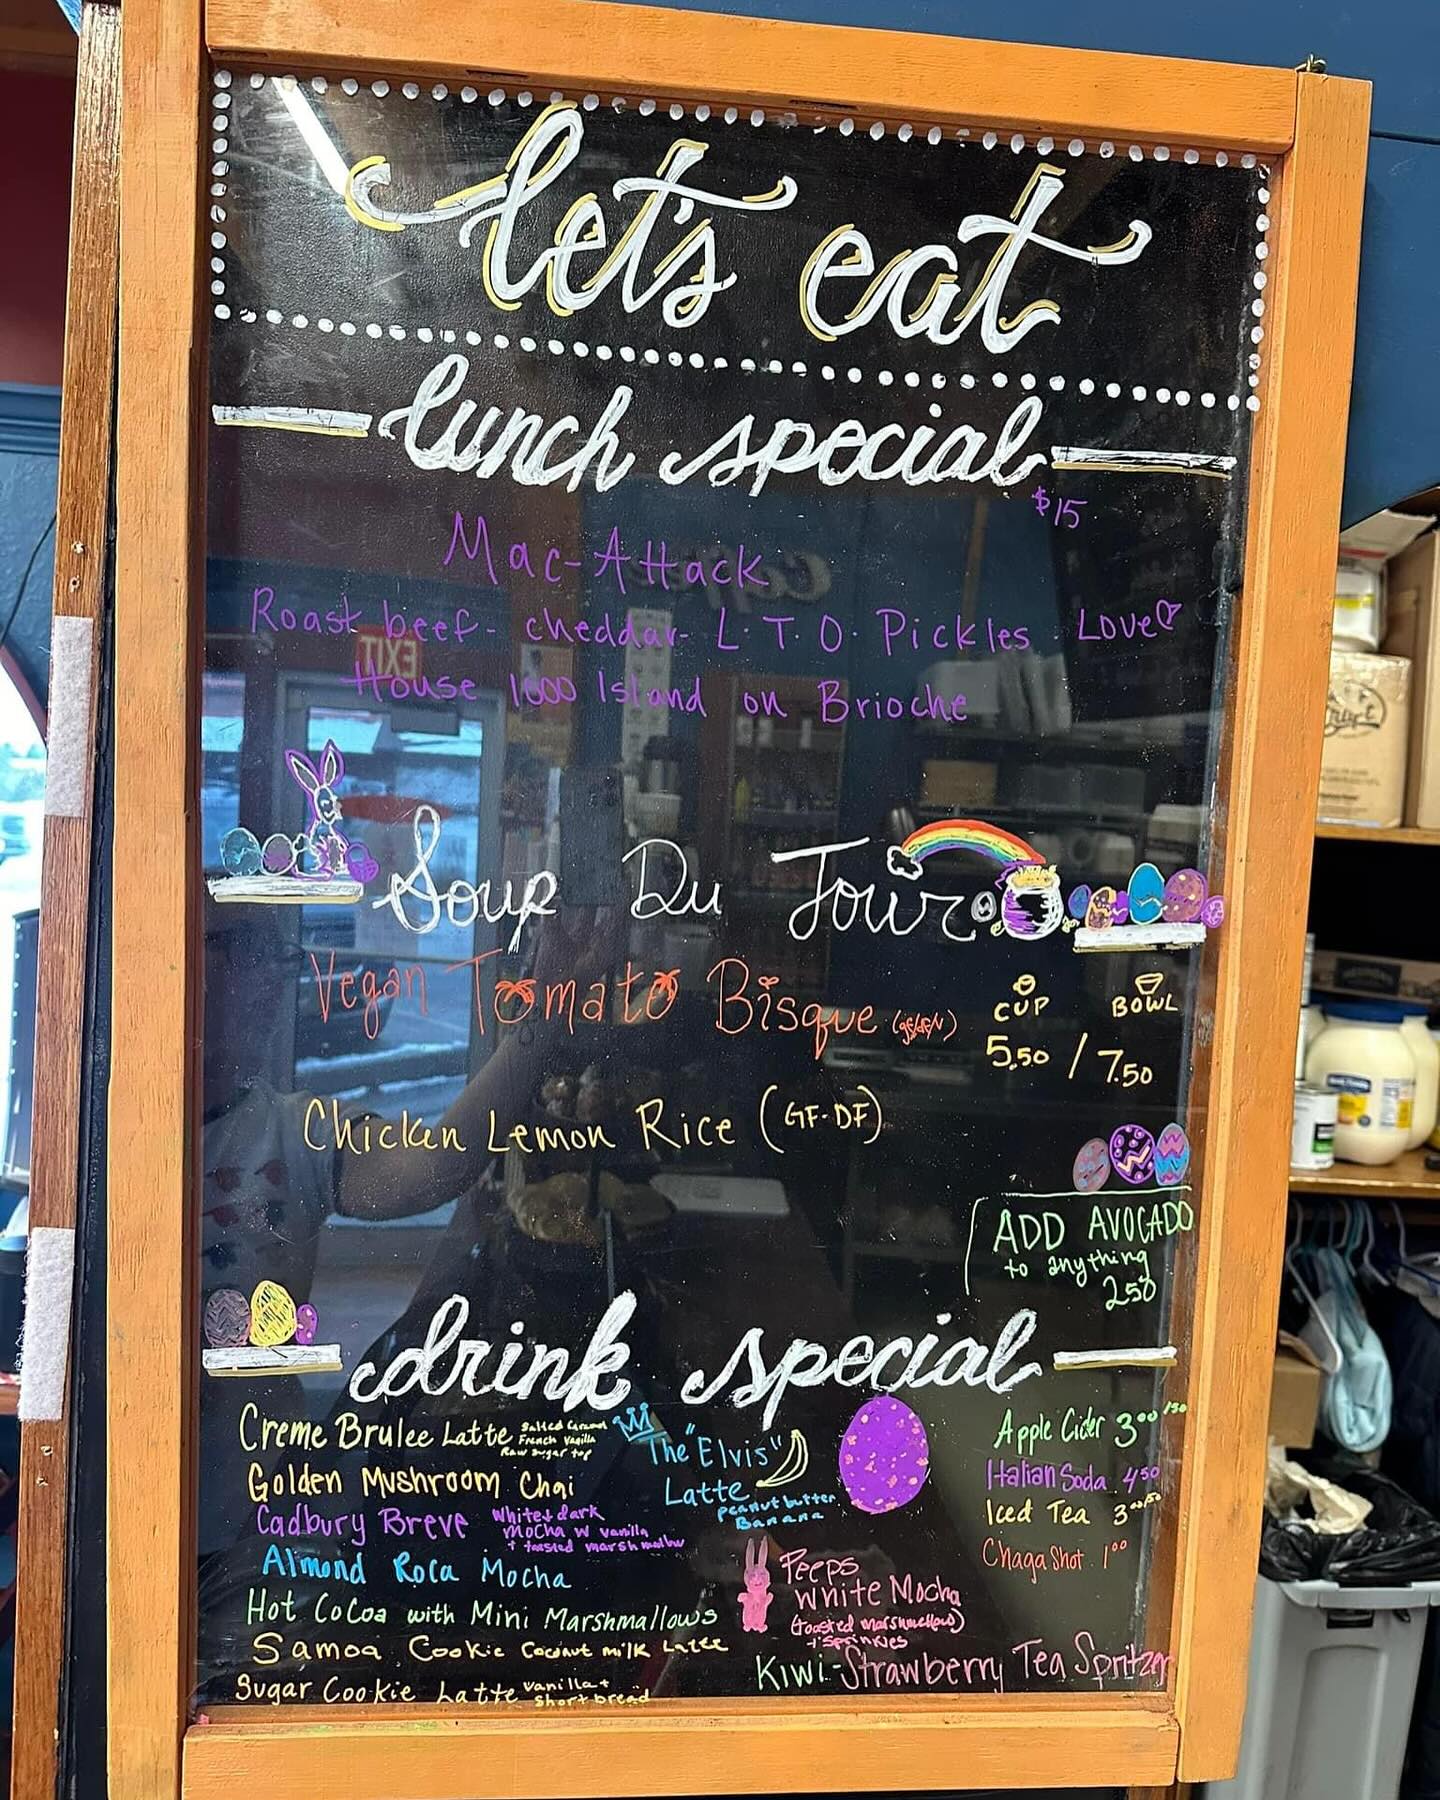 let's eat
lunch special
$15
Mac-Attack
Roast beef - cheddar - L.T.O. Pickles Love
House 1000 Island on Brioche
EXIT
Soup Du Jour
Vegan Tomato Bisque
CUP BOWL
5.50 / 7.50
Chicken Lemon Rice (GF-DF)
ADD AVOCADO
to anything
250
drink special
Creme Brulee Latte Salted Caramel
French Vanilla
Raw Sugar top
Golden Mushroom Chai
Cadbury Breve White + dark
Mocha w vanilla
+ toasted marshmallow
Almond Roca Mocha
Hot CoCoa with Mini Marshmallows
Samoa Cookie Coconut milk Latte
Sugar Cookie Latte vanilla +
Shortbread
The "Elvis"
Latte
peanut butter
Banana
Peeps
White Mocha
(toasted marshmellow)
+ Sprinkles
Kiwi-Strawberry Tea Spritzer
Apple Cider 3⁰⁰
Italian Soda 4⁵⁰
Iced Tea 3
Chaga Shot 1⁰⁰